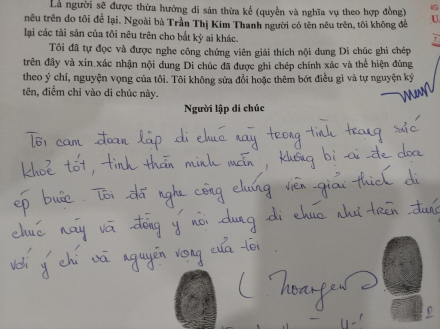 Là người sẽ được thừa hưởng di sản thừa kế (quyền và nghĩa vụ theo hợp đồng)
nêu trên do tôi để lại. Ngoài bà Trần Thị Kim Thanh người có tên nêu trên, tôi không để
lại các tài sản của tôi nêu trên cho bất kỳ ai khác.
Tôi đã tự đọc và được nghe công chứng viên giải thích nội dung Di chúc ghi chép
trên đây và xin xác nhận nội dung Di chúc đã được ghi chép chính xác và thể hiện đúng
theo ý chí, nguyện vọng của tôi. Tôi không sửa đổi hoặc thêm bớt điều gì và tự nguyện ký
tên, điểm chỉ vào di chúc này.
Người lập di chúc
Tôi cam đoan lập di chúc này trong tình trạng sức
khoẻ tốt, tinh thần minh mẫn, không bị ai đe dọa
ép buộc. Tôi đã nghe công chứng viên giải thích di
chúc này và đồng ý nội dung di chúc như trên đúng
với ý chí và nguyện vọng của tôi.